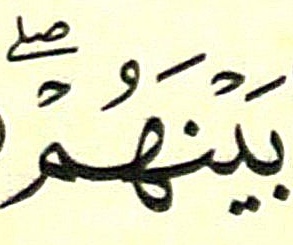 بَيْنَهُمْ ۖ